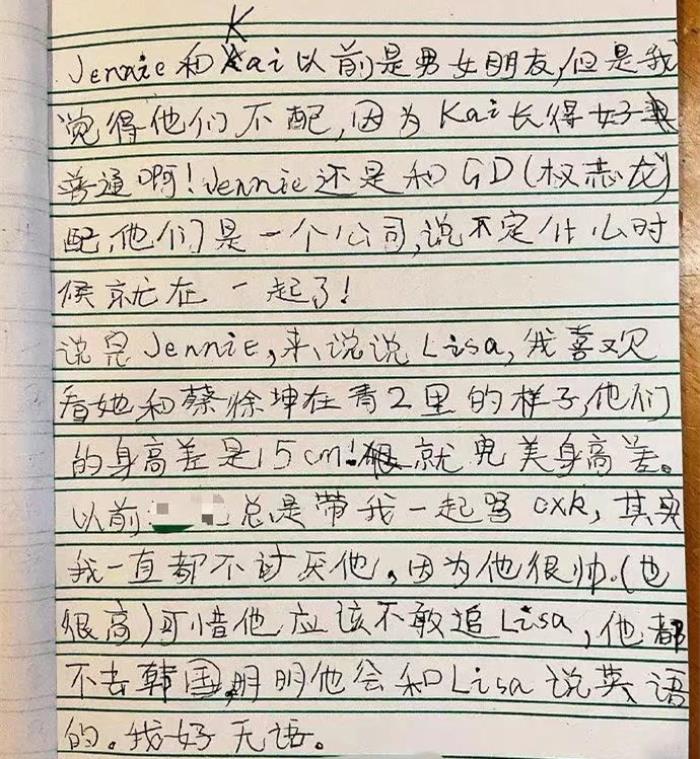 K
Jennie和Kai以前是男女朋友,但是我
觉得他们不配,因为Kai长得好
普通啊!Jennie还是和GD(权志龙)
配,他们是一个公司,说不定什么时
候就在一起了!
说完Jennie,来说说Lisa,我喜欢
看她和蔡徐坤在青2里的样子,他们
的身高差是15cm!就完美身高差。
以前 总是带我一起骂CXK,其实
我一直都不讨厌他,因为他很帅.(也
很高)可惜他应该不敢追Lisa,他都
不去韩国,明明他会和Lisa说英语
的。我好无语。